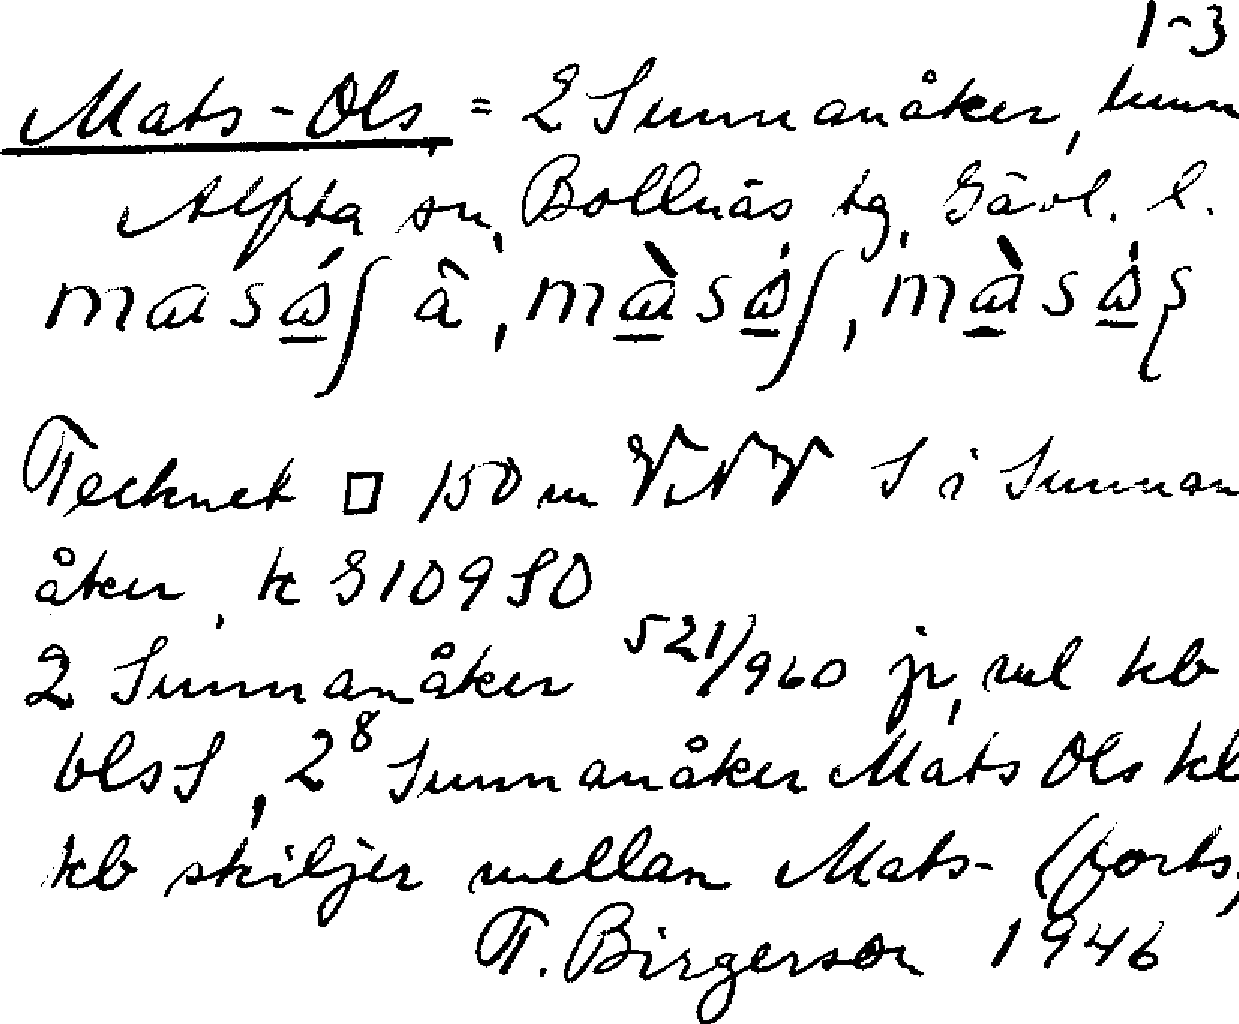 1-3
Mats-Ols, = 2 Sunnanåker, hmn
Alfta sn, Bollnäs tg, Gävl. l.
Tecknet □ 150 m VNV S i Sunnan
åker, k G 109 SO
2 Sunnanåker 521/960 jr,
2⁸ Sunnanåker Mats Ols kb
kb skiljer mellan Mats- (forts,
T. Birgerson 1946